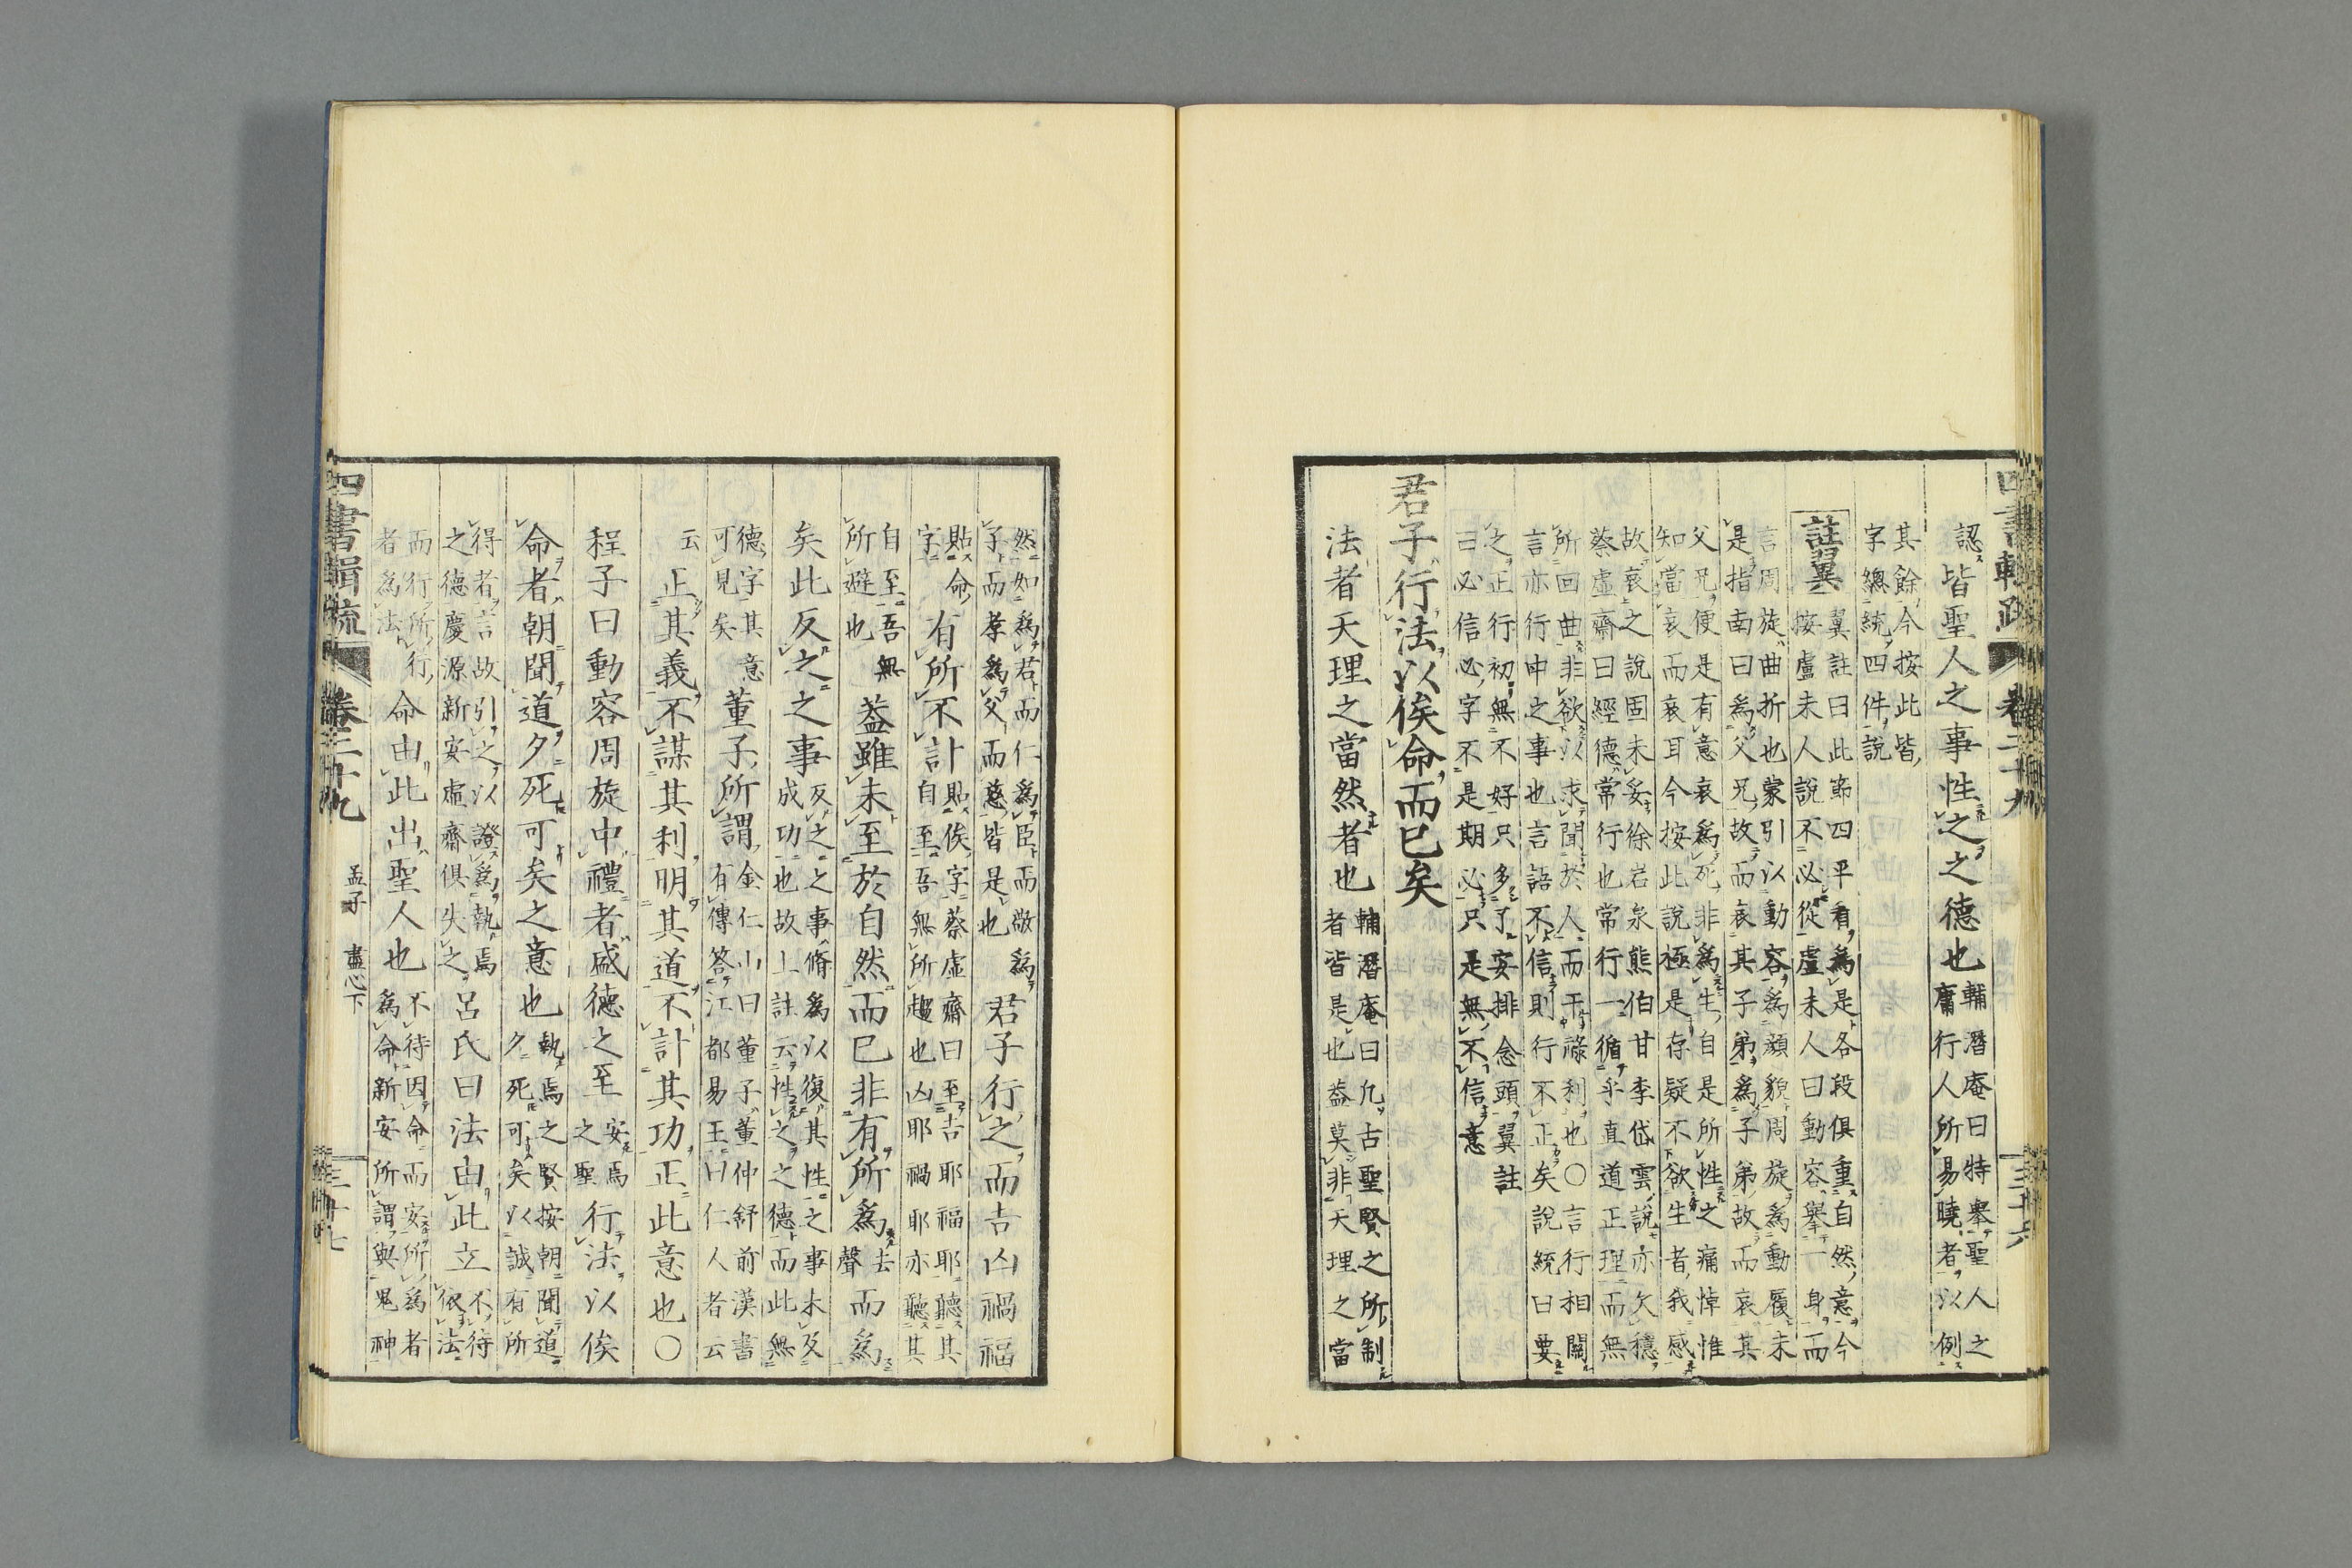 四書輯疏 卷二十九 三十六
認皆聖人之事性之之德也輔潛庵曰特舉聖人之
庸行人所易曉者以例
其餘今按此皆
字總統四件說
註翼翼註曰此節四平看爲是各段俱重自然意今
按盧未人說不必從盧未人曰動容舉一身而
言周旋曲折也蒙引以動容爲顏貌周旋爲動履未
是指南曰爲父兄故而哀其子弟爲子弟故而哀其
父兄便是有意哀爲死非爲生自是所性之痛悼惟
知當哀而哀耳今按此說極是存疑不欲生者我感
故哀之說固未妥徐岩泉熊伯甘李岱雲說亦欠穩
蔡虛齋曰經德常行也常行一循乎直道正理而無
所回曲非欲以求聞於人而干祿利也〇言行相關
言亦行中之事也言語不信則行不正矣說統曰要
之正行初無不好只多了安排念頭翼註
曰必信必字不是期必只是無不信意
君子行法以俟命而已矣
法者天理之當然者也輔潛庵曰凡古聖賢之所制
者皆是也蓋莫非天理之當
然如爲君而仁爲臣而敬爲
子而孝爲父而慈皆是也君子行之而吉凶禍福
貼命
字有所不計貼俟字蔡虛齋曰至吉耶福耶聽其
自至吾無所趨也凶耶禍耶亦聽其
自至吾無
所避也蓋雖未至於自然而已非有所爲去聲而爲
矣此反之之事反之之事脩爲以復其性之事未及
成功也故上註云性之之德而此無
德字其意
可見矣董子所謂金仁山曰董子董仲舒前漢書
有傳答江都易王曰仁人者云
云正其義不謀其利明其道不計其功正此意也〇
程子曰動容周旋中禮者盛德之至安焉
之聖行法以俟
命者朝聞道夕死可矣之意也執焉之賢按朝聞道
夕死可矣以誠有所
得者言故引之以證爲執焉
之德慶源新安虛齋俱失之呂氏曰法由此立不待
依法
而行所行
者爲法命由此出聖人也不待因命而安所爲者
爲命新安所謂與鬼神
四書輯疏 卷二十九 孟子 盡心下 三十七